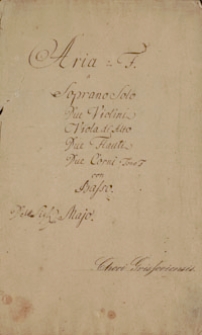 Aria ex F.
a
Soprano Solo
Due Violini
Viola di Alto
Due Flauti
Due Corni
con
Basso.
Majo.
Chori Grissoviensis